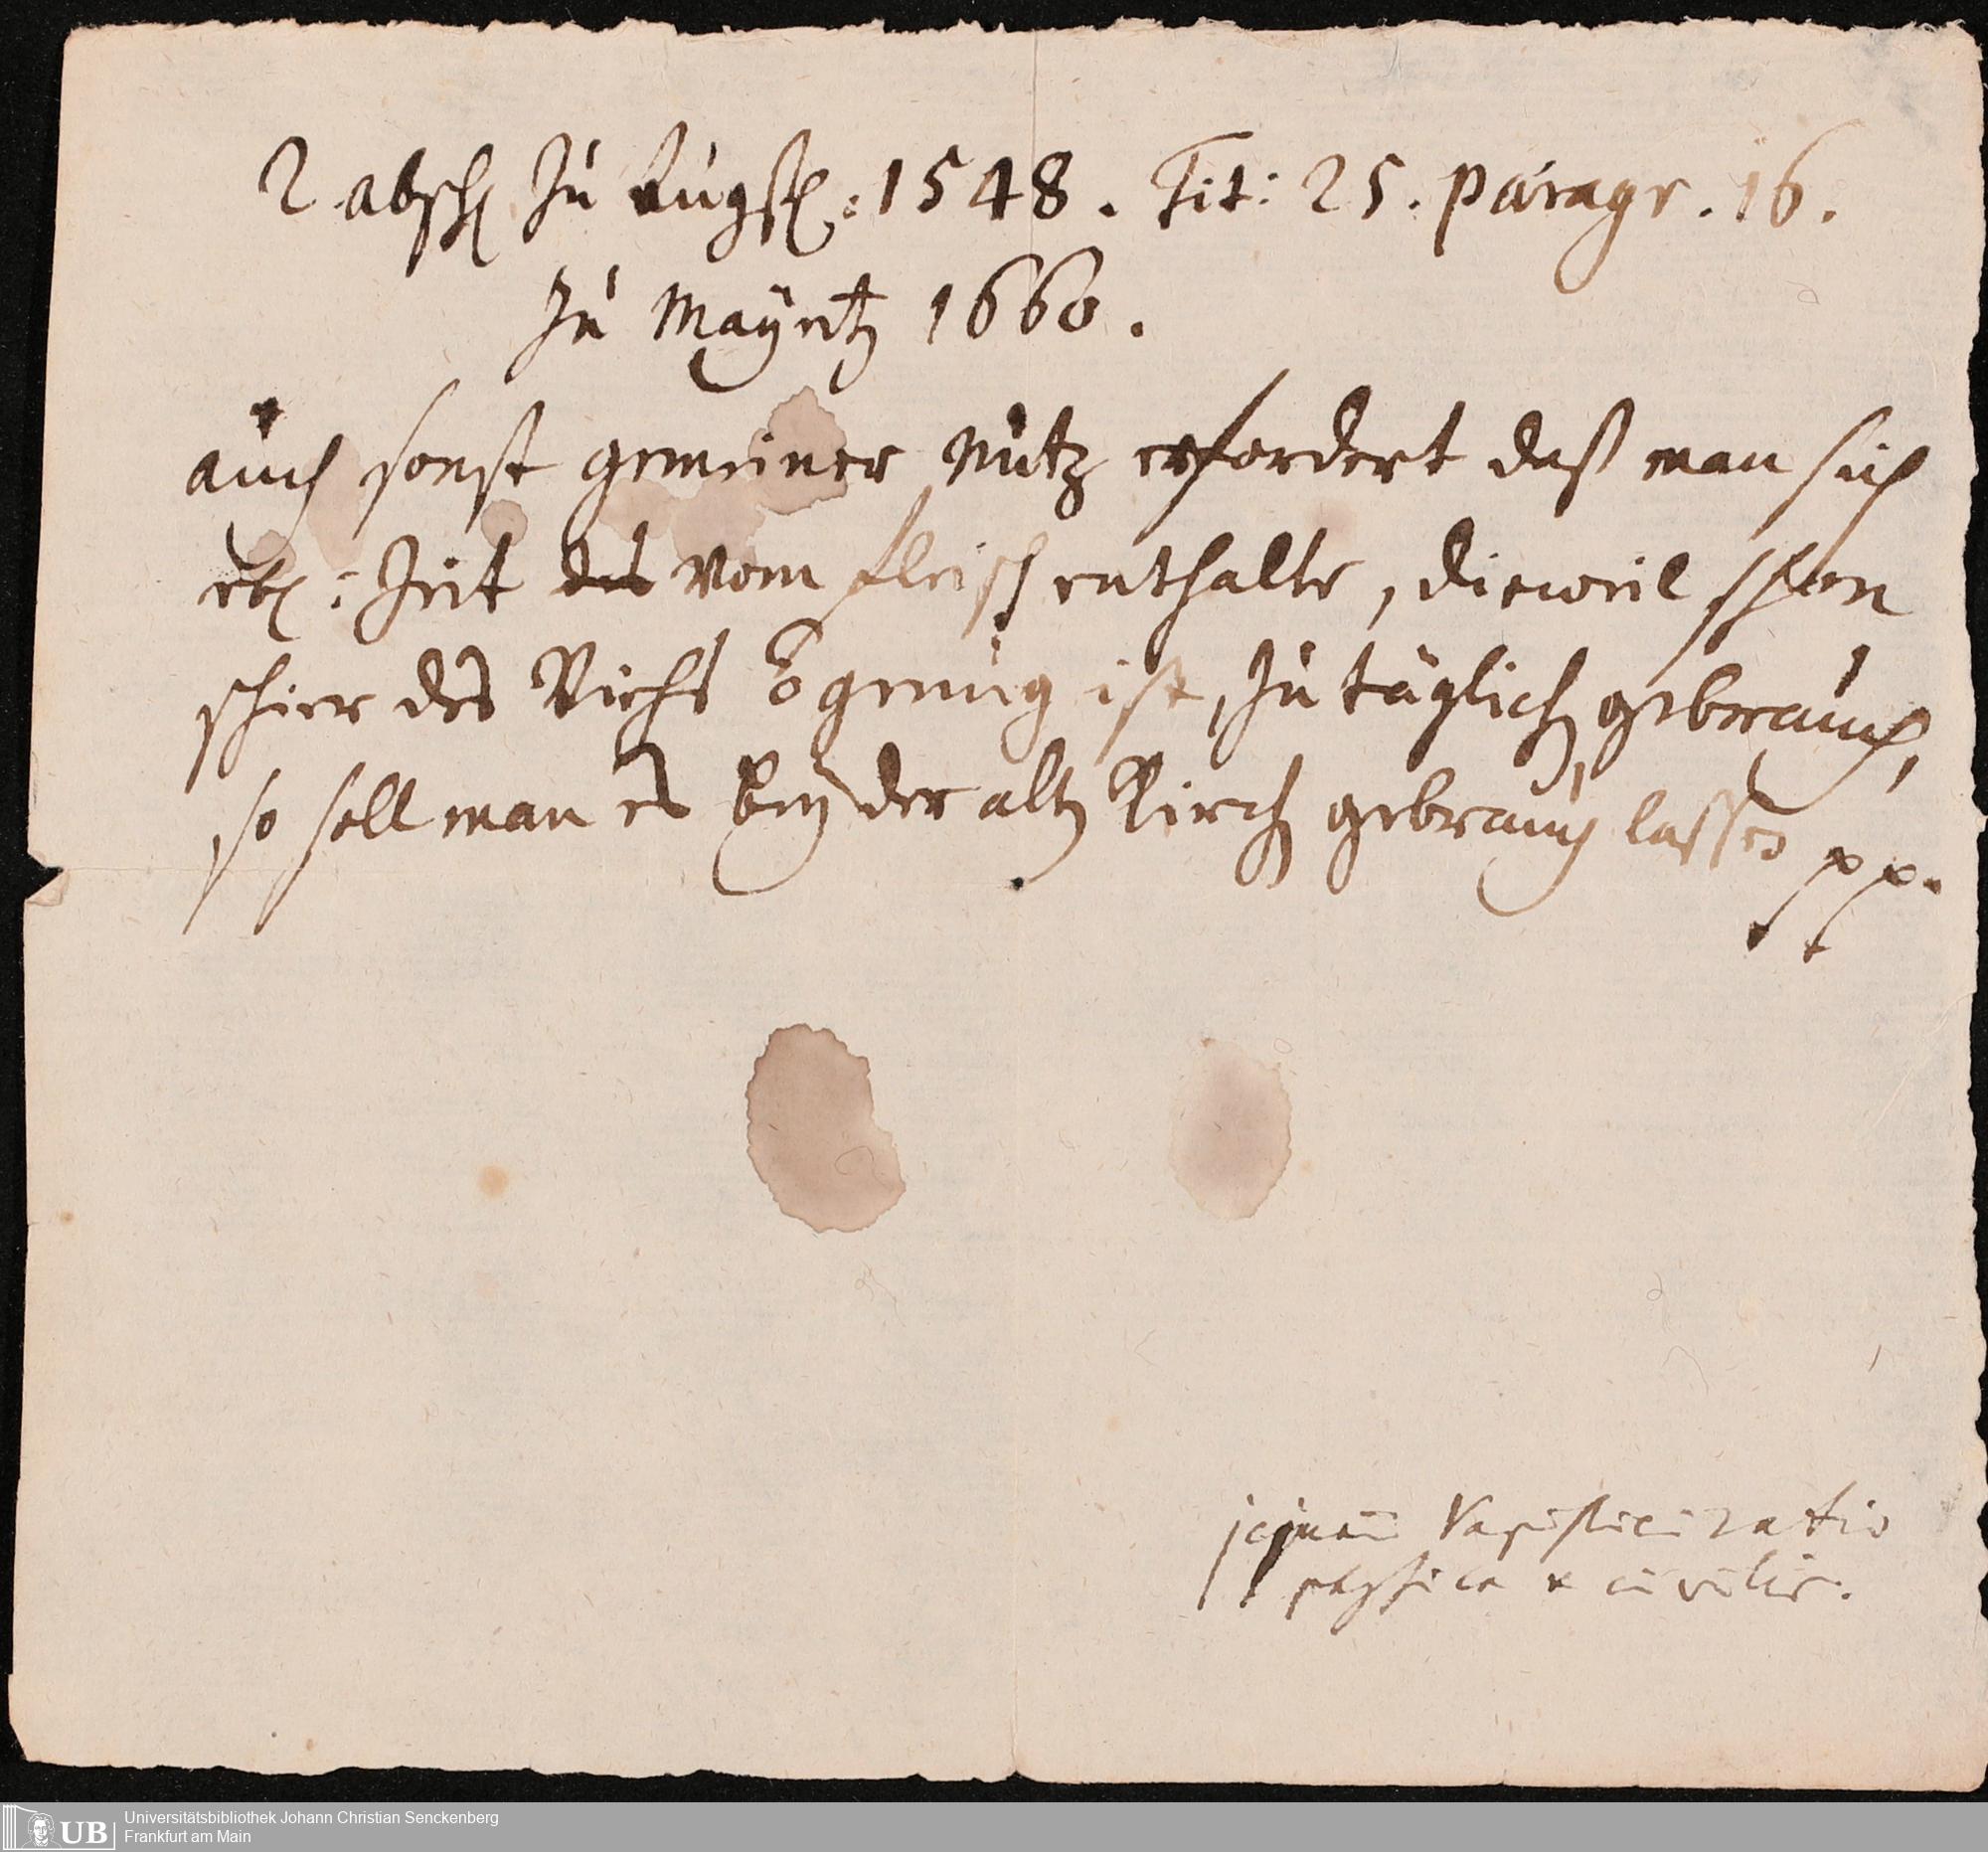 R absch zu Augsp: 1548. Tit: 25. paragr. 16.
zu Mayntz 1660.
auch sonst gemeiner Nutz erfordert daß man sich
etl: Zeit des vom fleisch enthalte, dieweil schon
schier des Viehs õ genug ist, zu täglich gebrauch,
so soll man es bey der alt Kirch gebrauch lassen pp.
jejunii ratio
physica & civilis.
Universitätsbibliothek Johann Christian Senckenberg
UB Frankfurt am Main